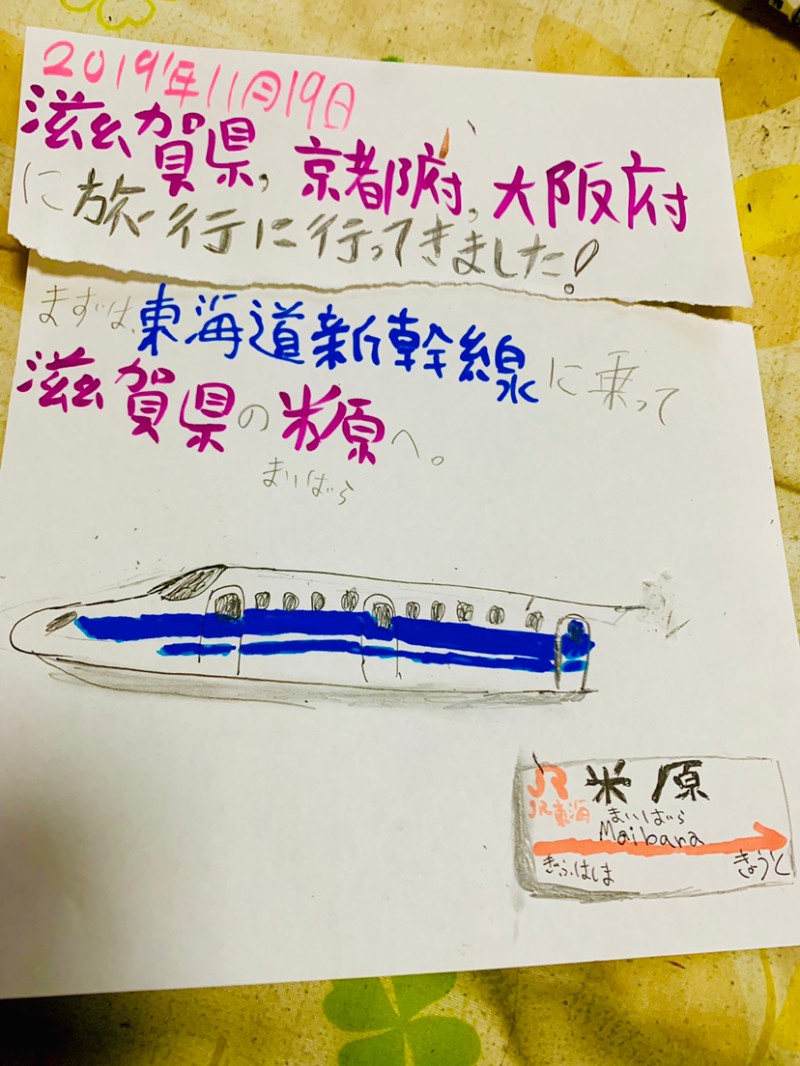 2019年11月19日
滋賀県,京都府,大阪府
に旅行に行ってきました!
まずは、東海道新幹線に乗って
滋賀県の米原へ。
まいばら
JR 米原
JR東海 まいばら
Maibara
ぎふはしま きょうと